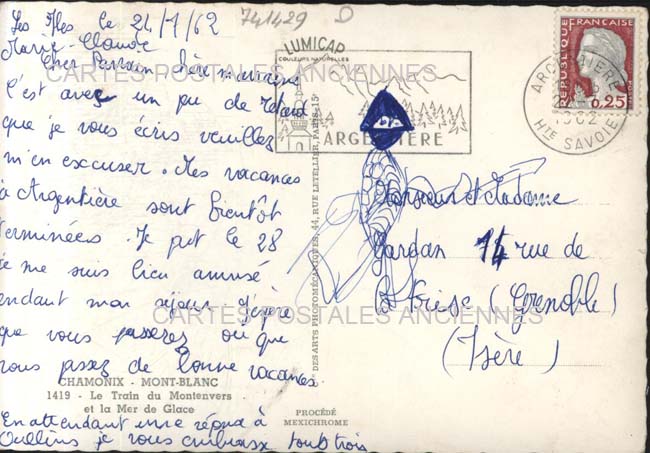 Les Iles le 24/7/62
741429
Marie-Claude
Cher Parrain chère marraine
C'est avec un peu de retard
que je vous écris veuilles
m'en excuser. Mes vacances
à Argentière sont bientôt
terminées. Je part le 28
je me suis bien amusé
pendant mon séjour. J'espère
que vous passerez ou que
vous passez de bonne vacances.
En attendant une répond à
Oullins je vous embrasse tous trois
CHAMONIX - MONT-BLANC
1419 - Le Train du Montenvers
et la Mer de Glace
PROCÉDÉ
MEXICHROME
DES ARTS PHOTOMÉCANIQUES, 44, RUE LETELLIER, PARIS-15e
LUMICAP
COULEURS NATURELLES
ARGENTIÈRE
ARGENTIERE
1962
HTE SAVOIE
REPUBLIQUE FRANÇAISE
0,25
Monsieur et Madame
Dardan 14 rue de
(Grenoble)
(Isère)
CARTES POSTALES ANCIENNES
CARTES POSTALES ANCIENNES